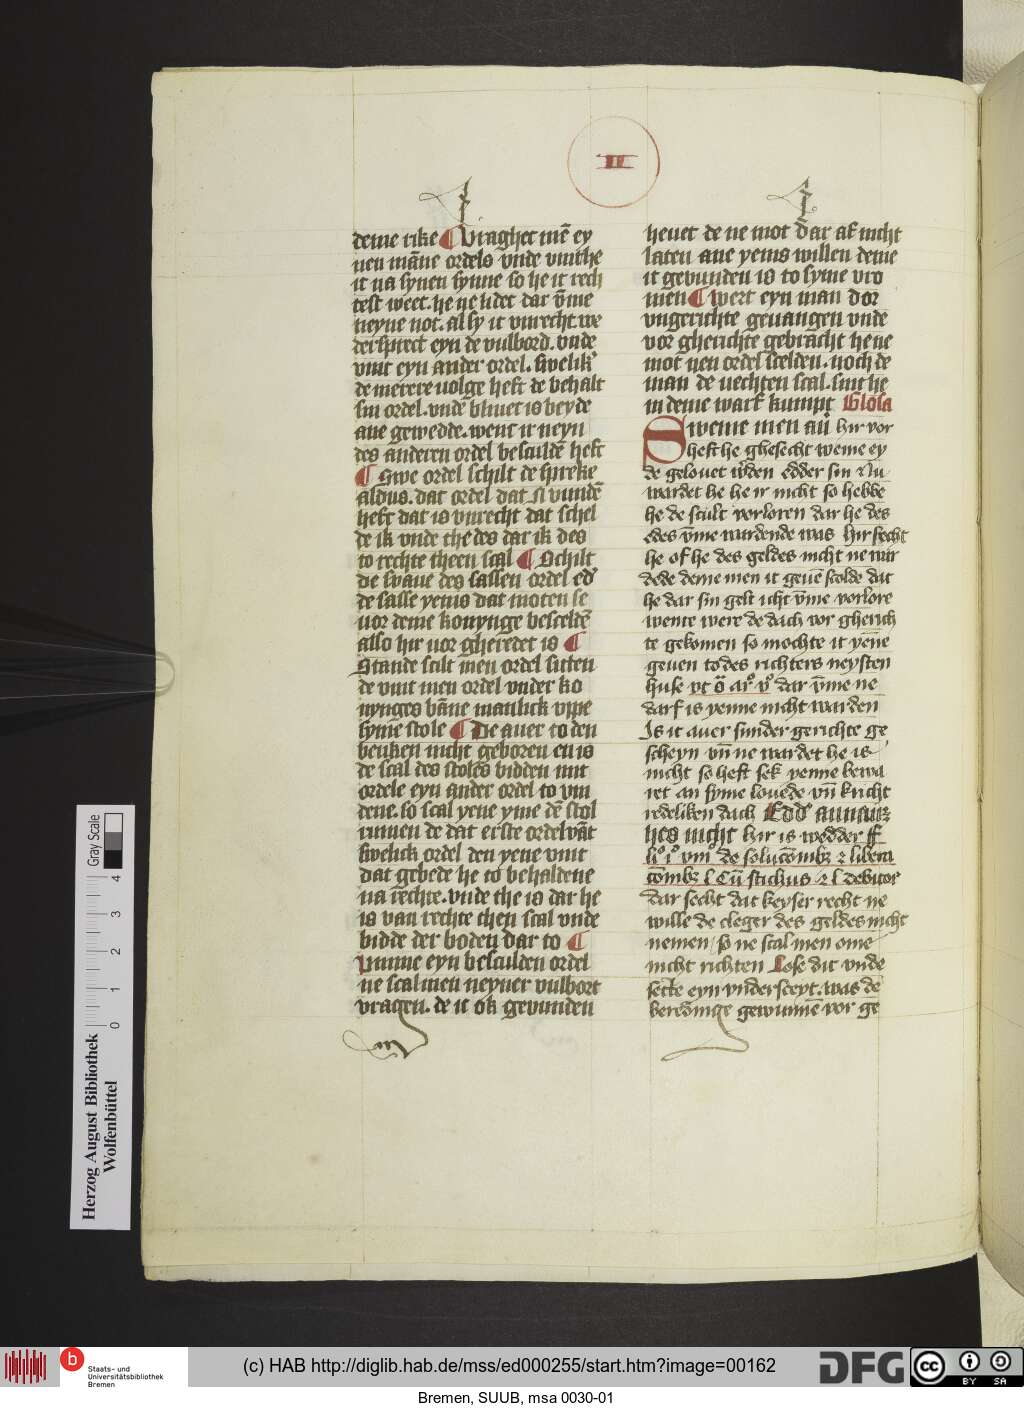 II
deme rike ¶ Uraghet mē ey
nen māne ordels vnde vinthe
it na synen synne so he it rech
test weet. he ne lidet dar v̄me
neyne not. al sy it vnrecht. we
der sprect eyn de vulbord. vnde
vint eyn ander ordel. swelik
de merere volge heft de behalt
sin ordel. vnde bliuet is beyde
ane gewedde. went ir neyn
des anderen ordel besculdē heft
¶ Swe ordel schilt de spreke
aldus. dat ordel dat si vundē
heft dat is vnrecht dat schel
de ik vnde the des dar ik des
to rechte theen scal ¶ Schilt
de swaue des sassen ordel ed
de sasse yenis dat moten se
uor deme konynge besceldē
also hir uor gheredet is ¶
Stande scalt men ordel sitten
de vint men ordel vnder ko
nynges bāne manlick vppe
syme stole ¶ De auer to den
benken nicht geboren en is
de scal des stoles bidden mit
ordele eyn ander ordel to vin
dene. so scal yene yme dē stol
rumen de dat erste ordel vāt
swelick ordel den yene vint
dat gebede he to behaldene
na rechte. vnde the is dar he
is van rechte then scal vnde
bidde der boden dar to ¶
Vmme eyn besculden ordel
ne scal men neyner vulbort
vragen. de it ok gevunden
heuet de ne mot dar af nicht
laten ane yenis willen deme
it gevunden is to syme vro
men ¶ Wert eyn man dor
vngerichte geuangen vnde
vor gherichte gebracht he ne
mot nen ordel scelden. noch de
man de vechten scal. sint he
in deme warf kumpt Glosa
Sweme men an hir vor
heft he ghesecht weme ey
de gelouet w̄den edder sin Nu
wardet he he ir nicht so hebbe
he de scult vorloren dar he des
edes v̄me wardende was hir secht
he of he des geldes nicht ne war
dede deme men it geuē scolde dat
he dar sin gelt icht v̄me vorlore
wente were de dach vor gherich
te gekomen so mochte it yene
geuen to des richters neysten
huse dar v̄me ne
darf is yenne nicht warden
Is it auer sunder gerichte ge
scheyn vn̄ ne wardet he is
nicht so heft sek yenne bewa
ret an syme louede vn̄ kricht
redeliken dach
hes nicht hir is wedder ff
li° i° vm de solucōmbꝫ ⁊ libera
cōmbꝫ l Cū stichus ⁊ l debitor
dar secht dat keyser recht ne
wille de cleger des geldes nicht
nemen / so ne scal men ome
nicht richten Lose dit vnde
secte eyn vnder sceyt. was de
gewunnē vor ge
Herzog August Bibliothek
Wolfenbüttel
0 1 2 3 4
Gray Scale
b
Staats- und
Universitätsbibliothek
Bremen
(c) HAB http://diglib.hab.de/mss/ed000255/start.htm?image=00162
DFG
cc BY SA
Bremen, SUUB, msa 0030-01